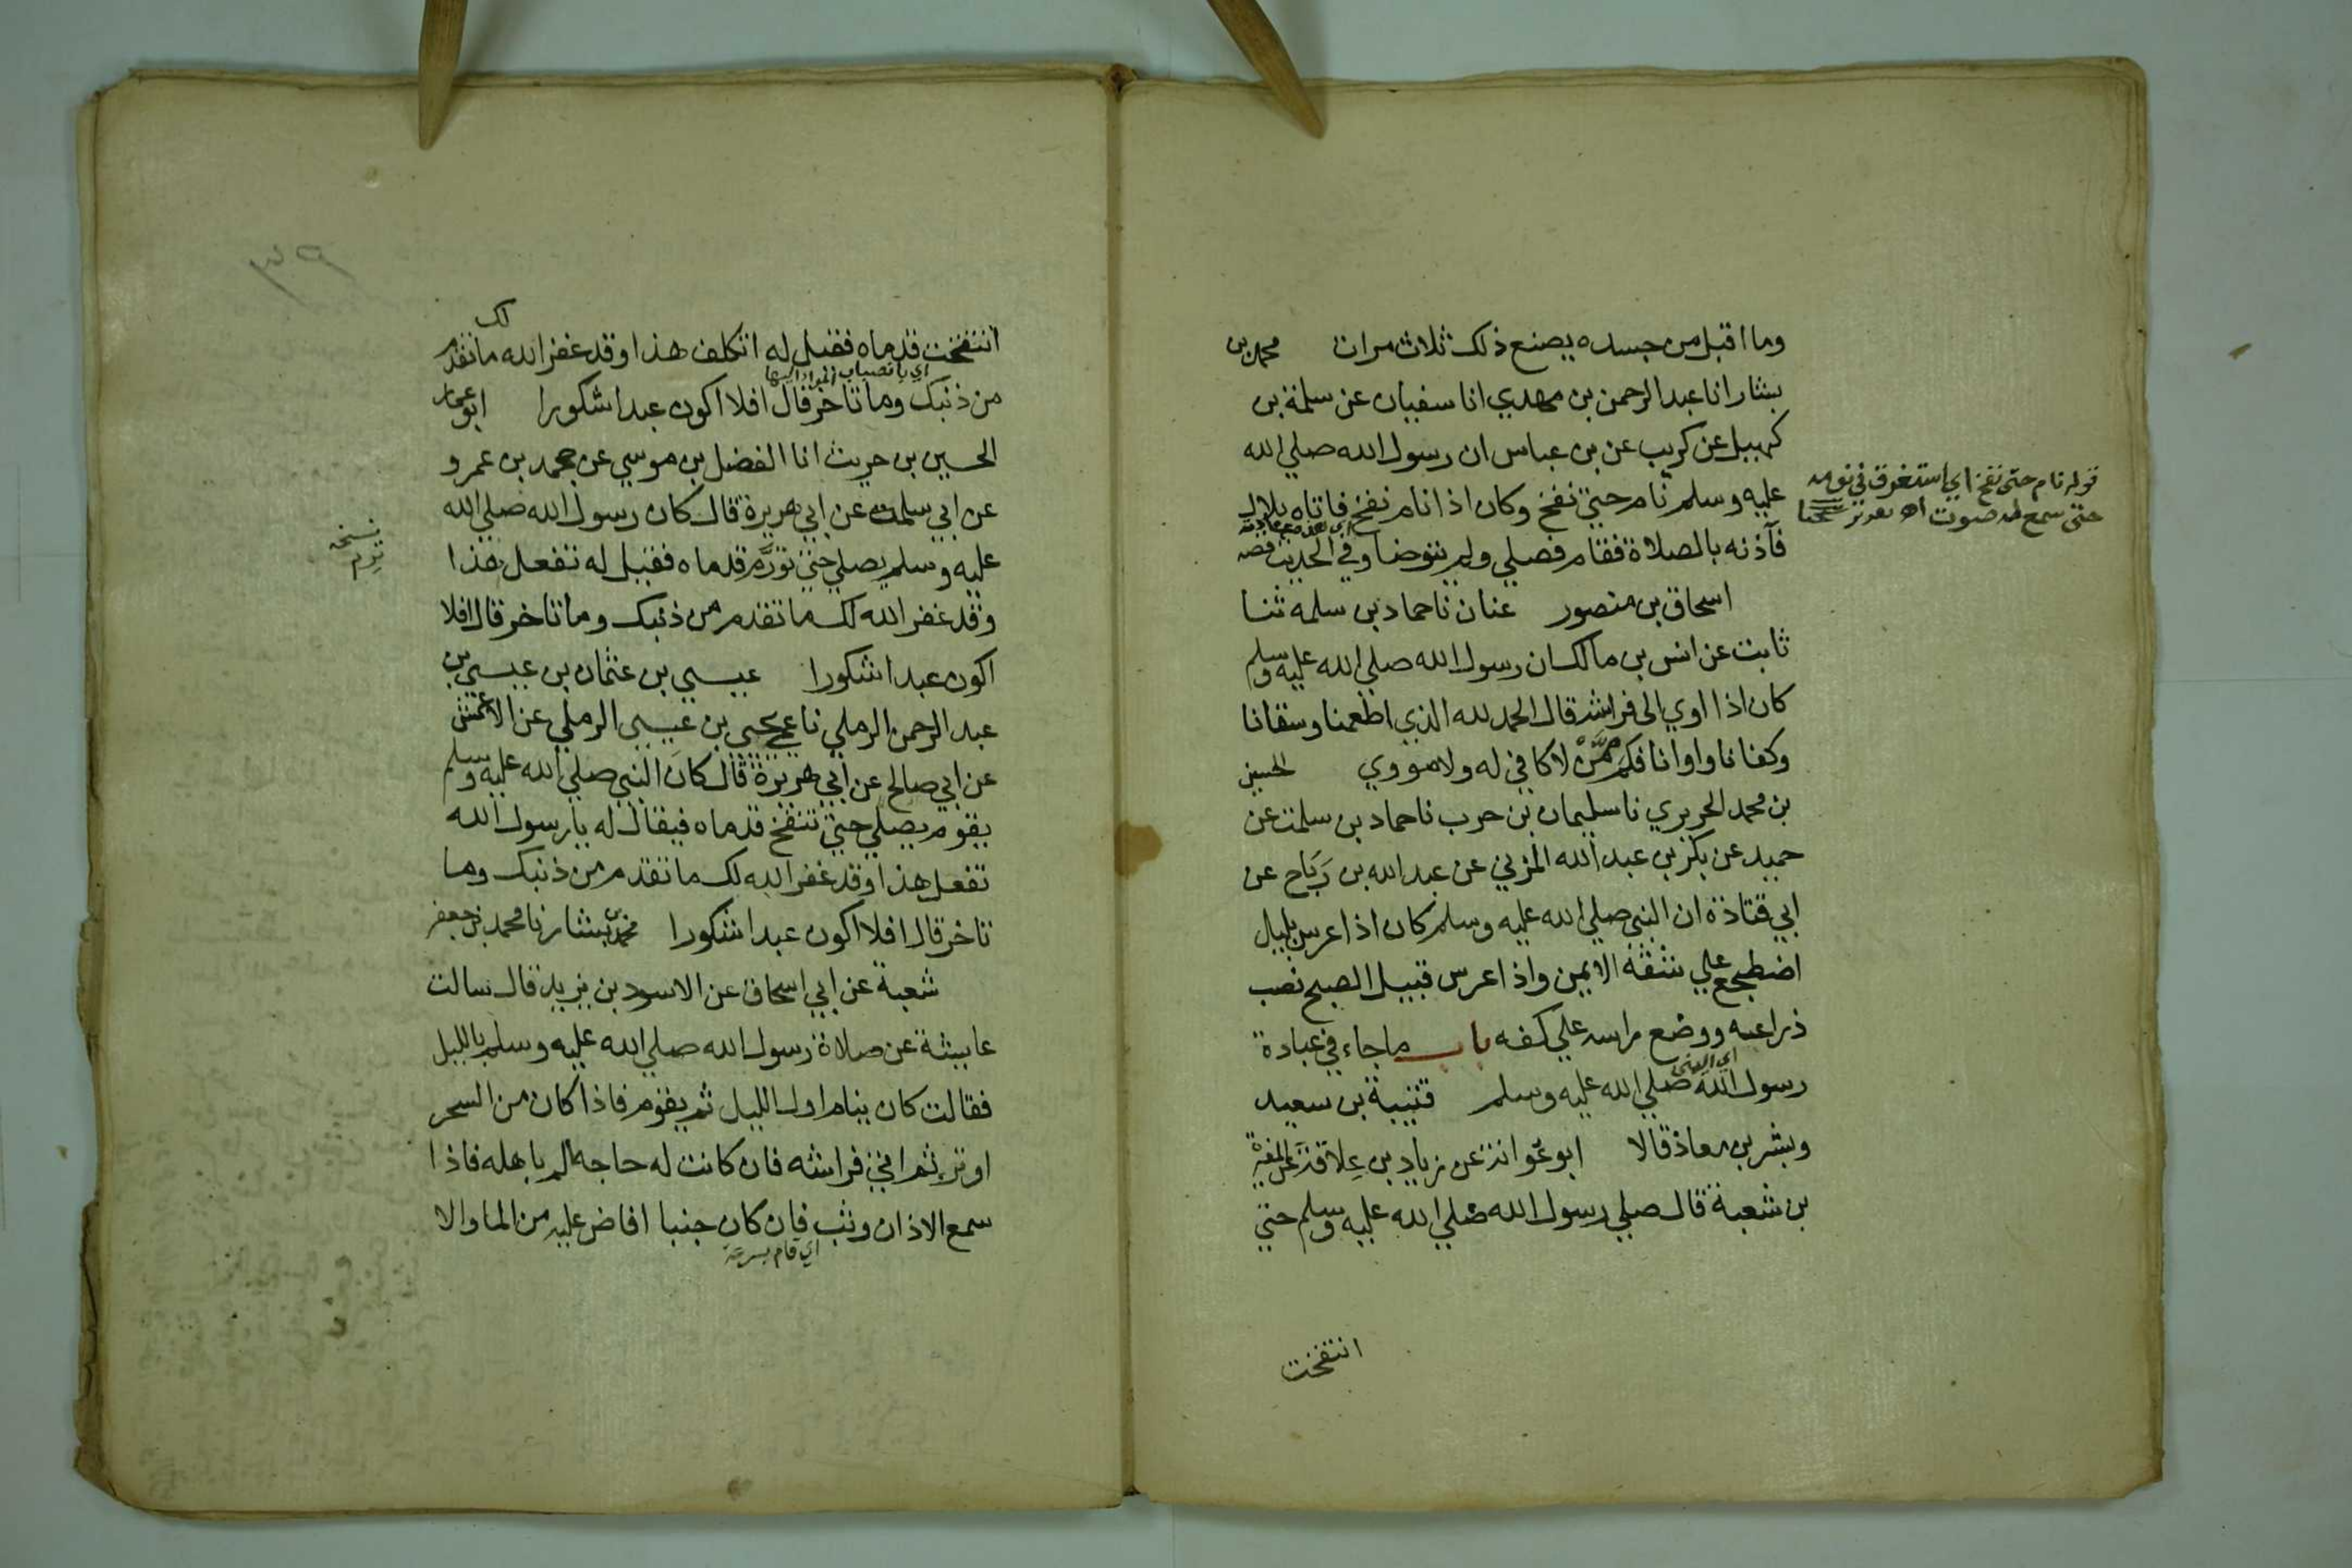 وما اقبل من جسده يصنع ذلك ثلاث مرات محمد بن
بشار انا عبد الرحمن بن مهدي انا سفيان عن سلمة بن
كهيل عن كريب عن بن عباس ان رسول الله صلي الله
عليه وسلم نام حتي نفخ وكان اذا نام نفخ فاتاه بلال
فآذنه بالصلاة فقام فصلي ولم يتوضا وفي الحديث قصه
اسحاق بن منصور عفان نا حماد بن سلمه ثنا
ثابت عن انس بن مالك ان رسول الله صلي الله عليه وسلم
كان اذا اوي الى فراشه قال الحمد لله الذي اطعمنا وسقانا
وكفانا واوانا فكم ممن لا كافي له ولا مووي الحسين
بن محمد الحريري نا سليمان بن حرب نا حماد بن سلمة عن
حميد عن بكر بن عبد الله المزني عن عبد الله بن رَبَاح عن
ابي قتادة ان النبي صلي الله عليه وسلم كان اذا عرس بليل
اضطجع علي شقه الايمن واذا عرس قبيل الصبح نصب
ذراعيه ووضع راسه علي كفه باب ماجاء في عبادة
اي النبي
رسول الله صلي الله عليه وسلم قتيبة بن سعيد
وبشر بن معاذ قالا ابو عوانة عن زياد بن عِلاقة عن المغيرة
بن شعبة قال صلي رسول الله صلي الله عليه وسلم حتي
انتفخت
قوله نام حتى نفخ اي استغرق في نومه
حتى سمع له صوت اه
انتفخت قدماه فقيل له اتكلف هذا وقد غفر الله لك ما تقدم
من ذنبك وما تاخر قال افلا اكون عبدا شكورا ابو عمار
الحسين بن حريث انا الفضل بن موسي عن محمد بن عمرو
عن ابي سلمة عن ابي هريرة قال كان رسول الله صلي الله
عليه وسلم يصلي حتي تورَّم قدماه فقيل له تفعل هذا
وقد غفر الله لك ما تقدم من ذنبك وما تاخر قال افلا
اكون عبدا شكورا عيسي بن عثمان بن عيسي بن
عبد الرحمن الرملي نا عمي يحيي بن عيسى الرملي عن الاعمش
عن ابي صالح عن ابي هريرة قال كان النبي صلي الله عليه وسلم
يقوم يصلي حتي تنتفخ قدماه فيقال له يا رسول الله
تفعل هذا وقد غفر الله لك ما تقدم من ذنبك وما
تاخر قال افلا اكون عبدا شكورا محمد بن بشار نا محمد بن جعفر
شعبة عن ابي اسحاق عن الاسود بن يزيد قال سالت
عايشة عن صلاة رسول الله صلي الله عليه وسلم بالليل
فقالت كان ينام اول الليل ثم يقوم فاذا كان من السحر
اوتر ثم اتي فراشه فان كانت له حاجة الم باهله فاذا
سمع الاذان وثب فان كان جنبا افاض عليه من الما والا
اي قام بسرعة
نسخه
ترم